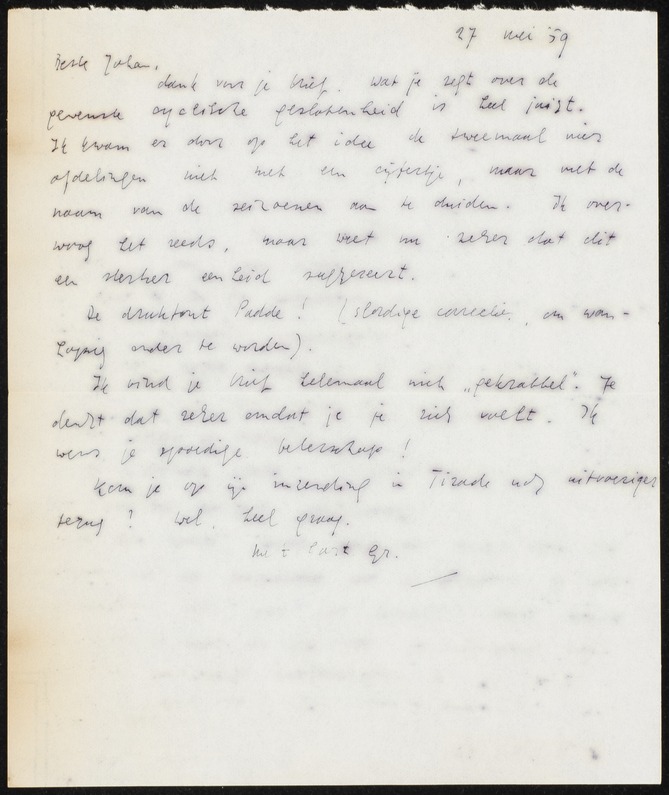 27 mei '59
Beste Johan,
dank voor je brief. Wat je zegt over de
gewenste cyclische geslotenheid is heel juist.
Ik kwam er door op het idee de tweemaal vier
afdelingen niet met een cijfertje, maar met de
naam van de seizoenen aan te duiden. Ik over-
woog het reeds, maar weet nu zeker dat dit
een sterker eenheid suggereert.
De drukfout Padde! (slordige correctie, om wan-
hopig onder te worden).
Ik vind je brief helemaal niet „gekrabbel". Je
denkt dat zeker omdat je je ziek voelt. Ik
wens je spoedige beterschap!
Kom je op mijn inzending in Tirade nog uitvoeriger
terug? Wel, heel graag.
Met hart. Gr.